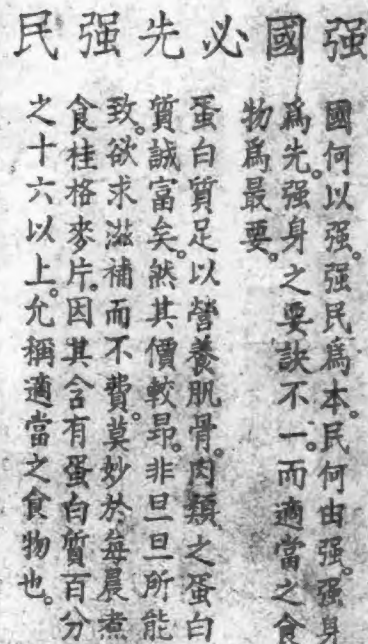 强國必先强民
國何以强。强民爲本。民何由强。强身
爲先。强身之要訣不一。而適當之食
物爲最要。
蛋白質足以營養肌骨。肉類之蛋白
質誠富矣。然其價較昂。非旦旦所能
致。欲求滋補而不費。莫妙於每晨煮
食桂格麥片。因其含有蛋白質百分
之十六以上。允稱適當之食物也。